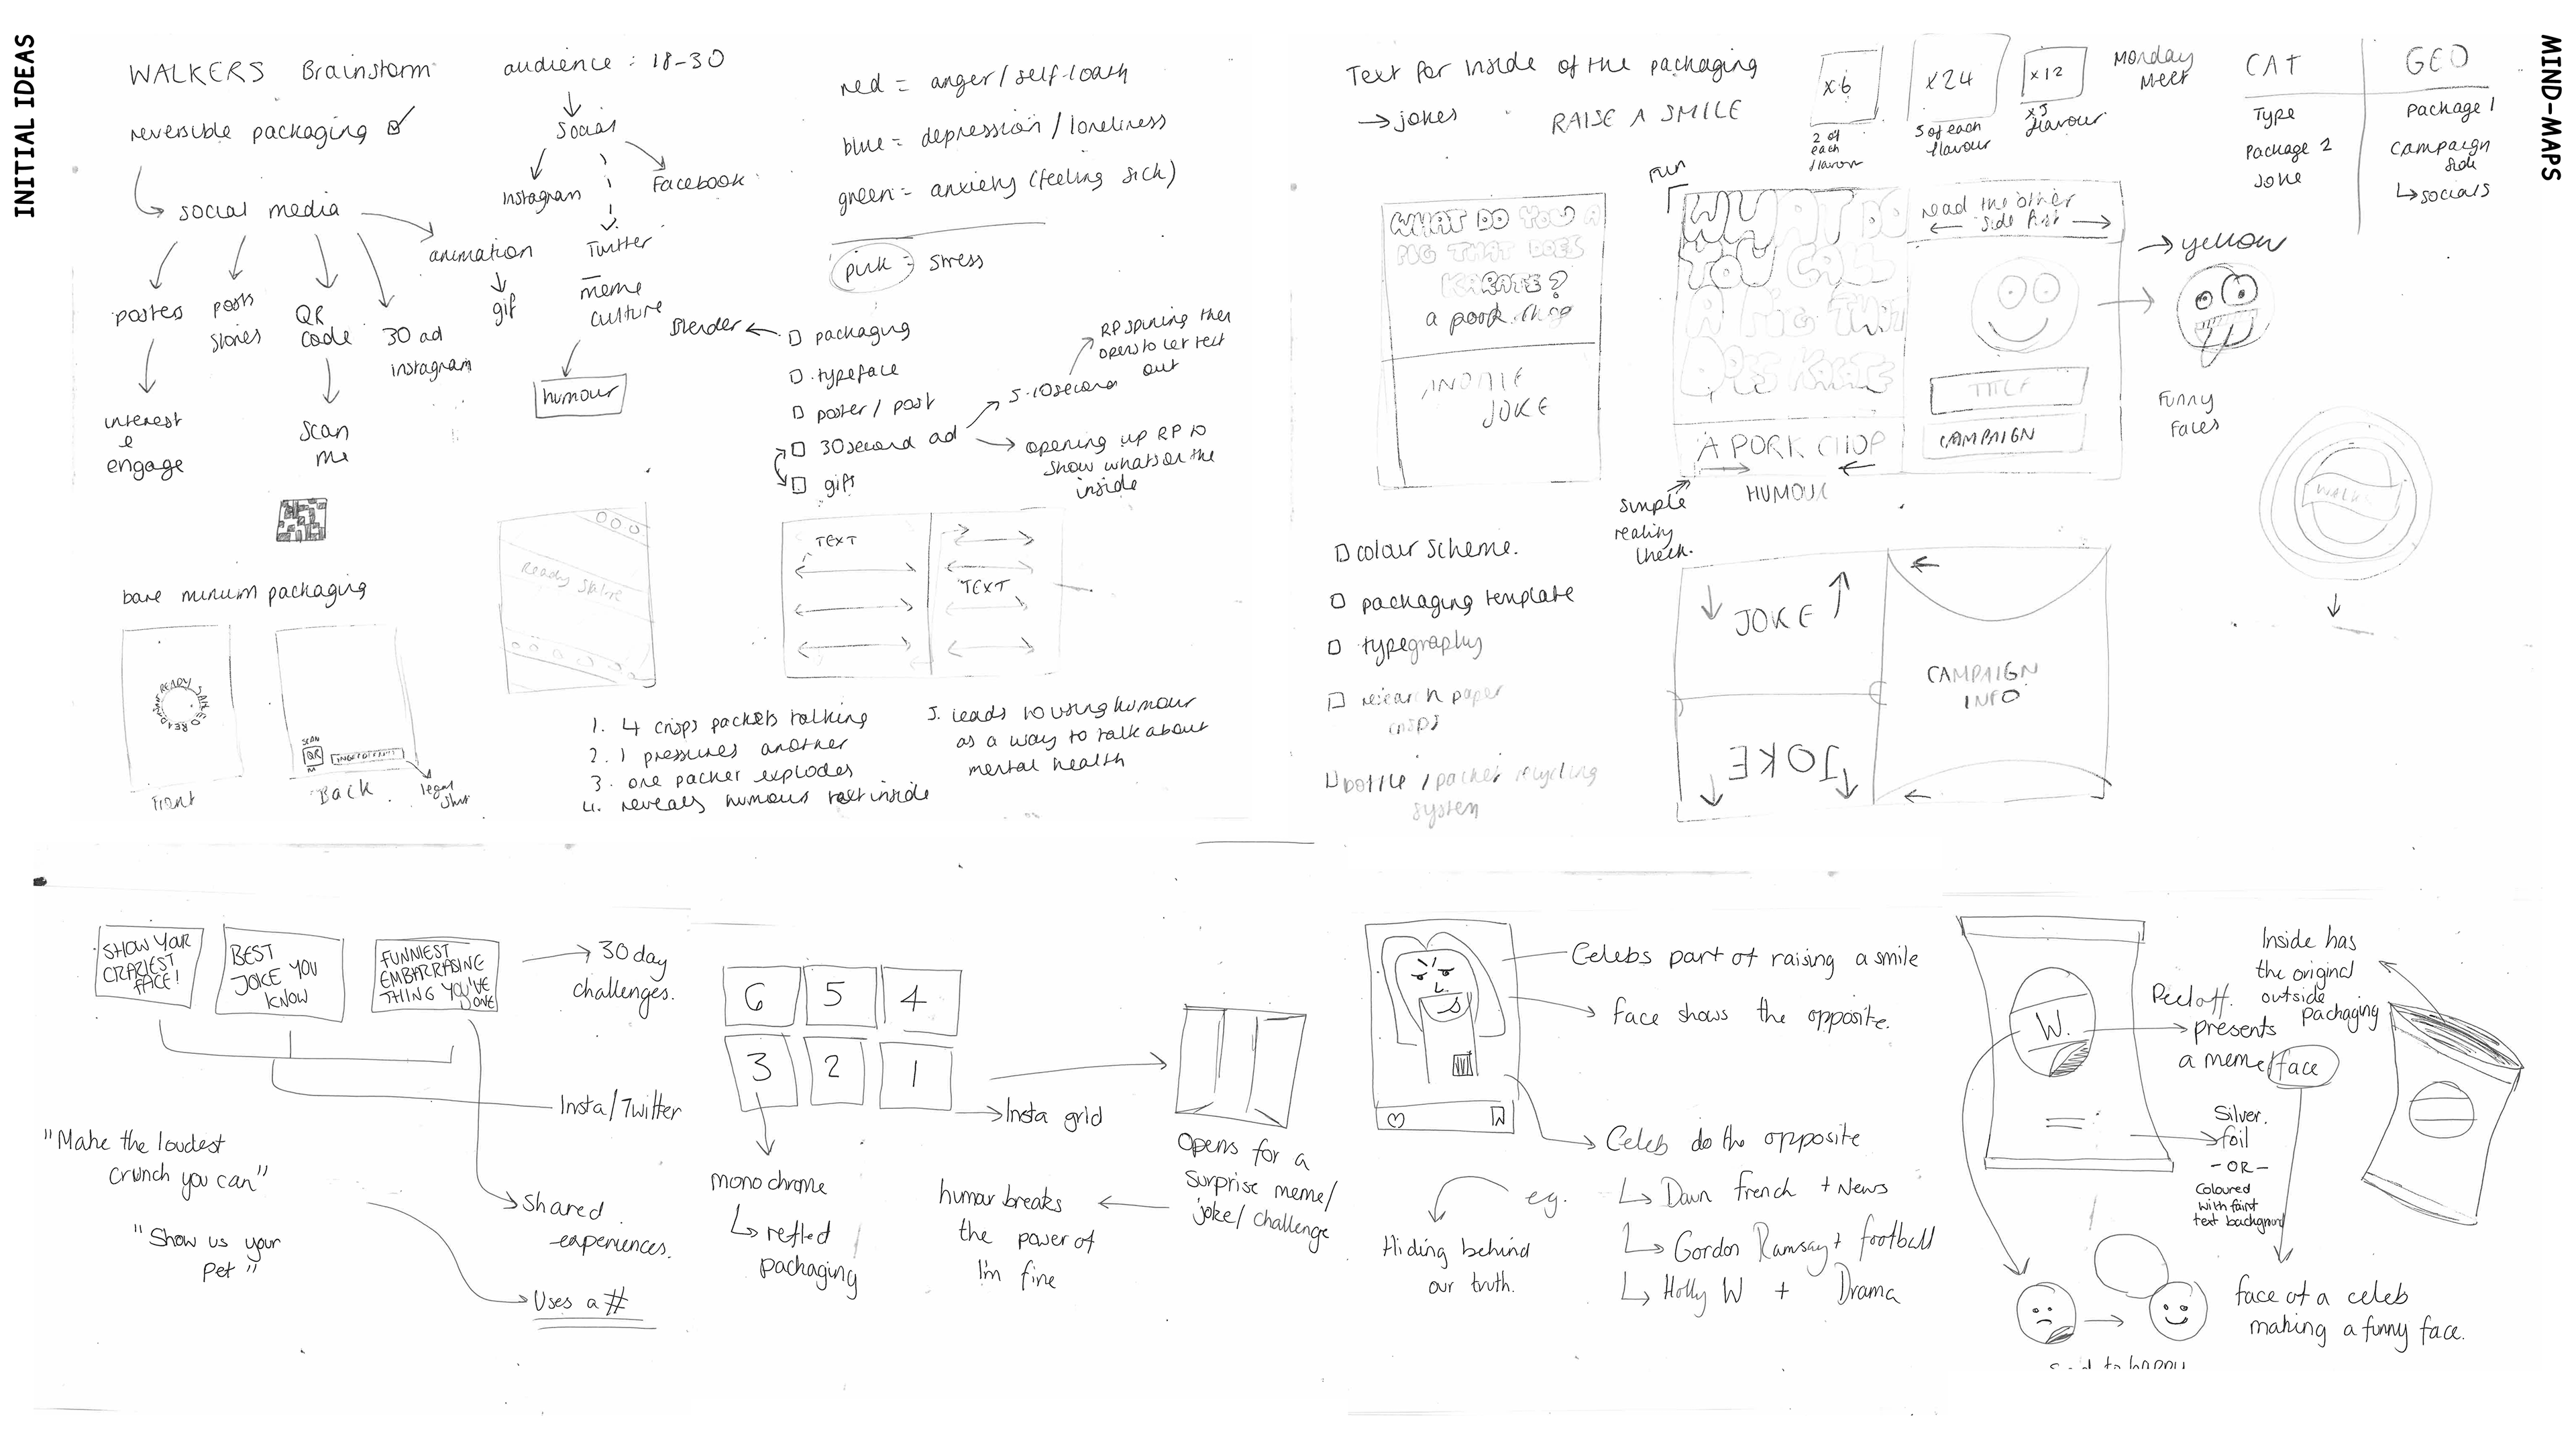 INITIAL IDEAS
WALKERS Brainstorm
reversible packaging
social media
posters
posts
stories
QR
code
30 ad
instagram
animation
gif
interest
&
engage
scan
me
audience : 18-30
social
instagram
Facebook
Twitter
meme
culture
humour
red = anger/self-loath
blue = depression / loneliness
green = anxiety (feeling sick)
pink = stress
Blender
packaging
typeface
poster / post
30second ad
gifs
5-10second
RP spining then
opens to let text
out
opening up RP to
show whats on the
inside
bare minium packaging
Front
SCAN
QR
Back
legal
Ready Salted
TEXT
TEXT
1. 4 crisps packets talking
2. 1 pressures another
3. one packet explodes
4. reveals humous text inside
5. leads to using humour
as a way to talk about
mental health
MIND-MAPS
Text for inside of the packaging
→ jokes
RAISE A SMILE
x6
2 of
each
flavour
x24
5 of each
flavour
x12
x3
flavour
Monday
Meet
CAT
Type
Package 2
Joke
GEO
Package 1
Campaign
side
↳ socials
WHAT DO YOU A
PIG THAT DOES
KARATE?
a pork chop
JOKE
FUN
WHAT DO
YOU CALL
A PIG THAT
DOES KARATE
A PORK CHOP
HUMOUR
simple
reality
check.
read the other
side first
TITLE
CAMPAIGN
→ yellow
Funny
Faces
colour scheme.
packaging template
typography
research paper
crisps
bottle / packet recycling
system
JOKE
JOKE
CAMPAIGN
INFO
SHOW YOUR
CRAZIEST
FACE!
BEST
JOKE YOU
KNOW
FUNNIEST
EMBARRASING
THING YOU'VE
DONE
30 day
challenges.
Insta/Twitter
"Make the loudest
crunch you can"
"Show us your
pet"
Shared
experiences.
Uses a #
6 5 4
3 2 1
Insta grid
monochrome
↳ reflect
packaging
Opens for a
surprise meme/
joke/ challenge
humor breaks
the power of
I'm fine
Celebs part of raising a smile
face shows the opposite.
Celeb do the opposite
eg.
Dawn French + News
Gordon Ramsay + football
Holly W + Drama
Hiding behind
our truth.
W.
Peel off.
presents
a meme/face
Inside has
the original
outside
packaging
Silver.
foil
-OR-
Coloured
with faint
text background
face of a celeb
making a funny face.